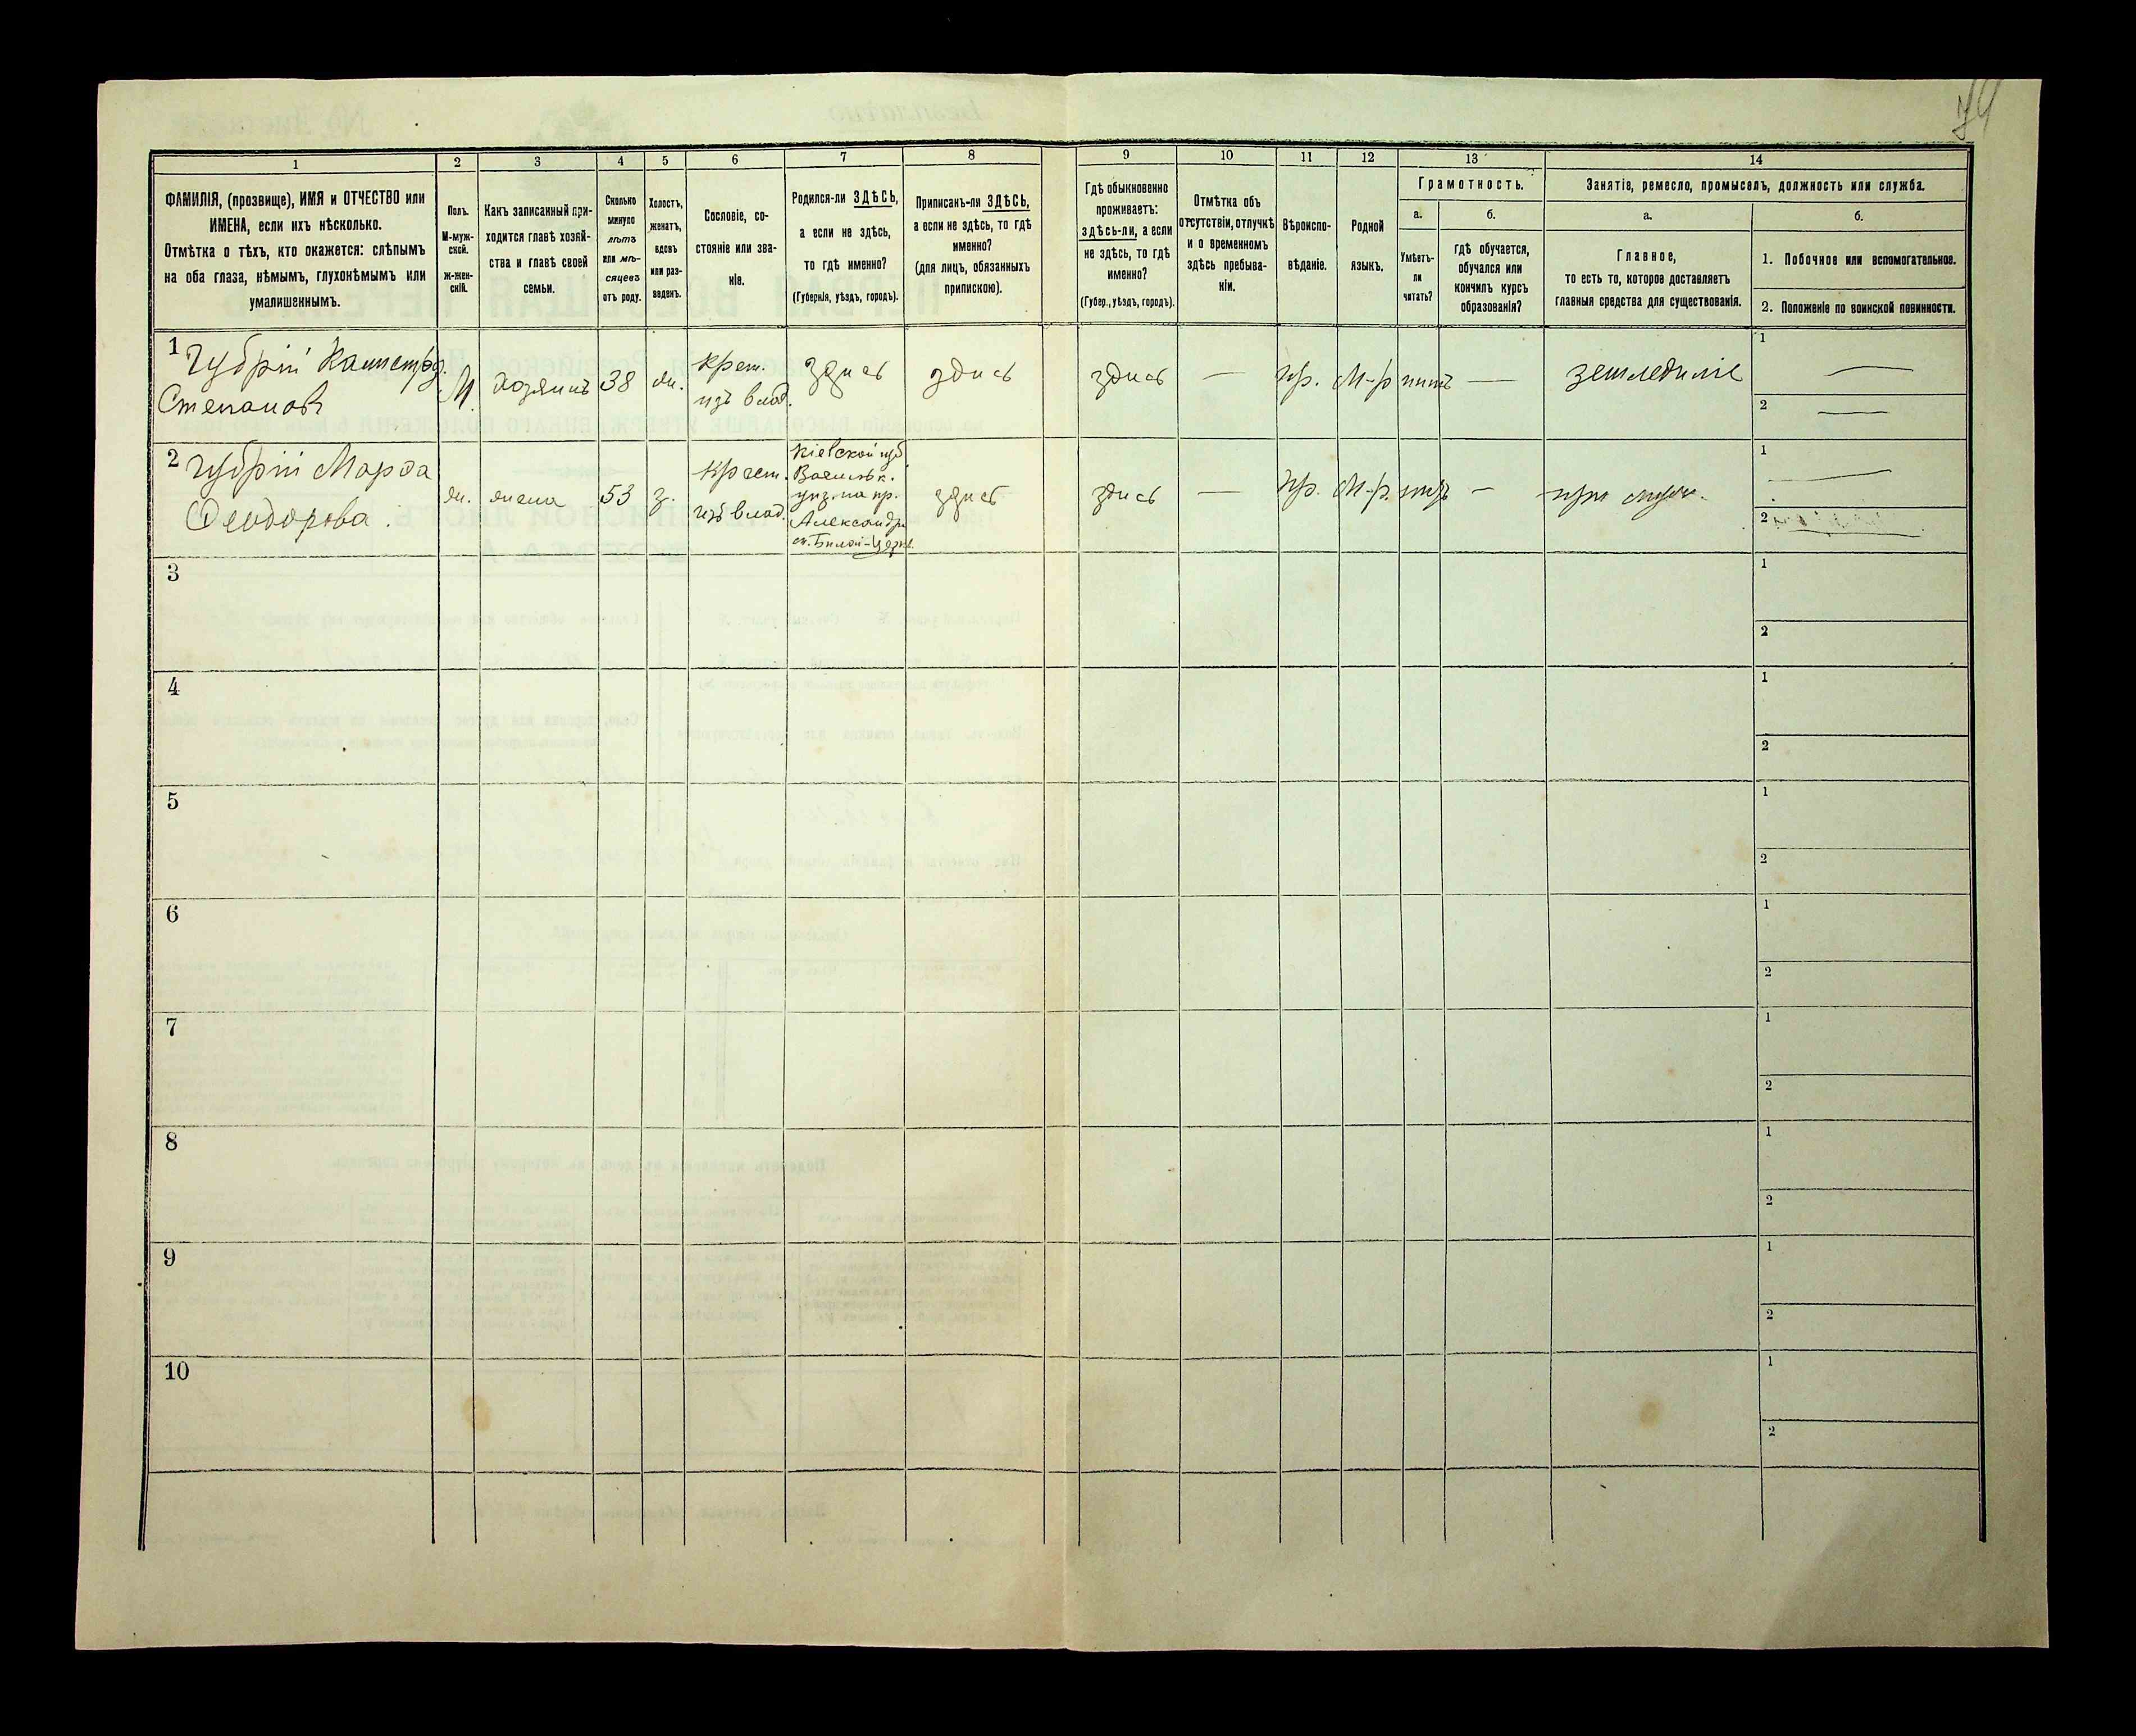 74
1
2
3
4
5
6
7
8
9
10
11
12
13
14
ФАМИЛІЯ, (прозвище), ИМЯ и ОТЧЕСТВО или
ИМЕНА, если ихъ нѣсколько.
Отмѣтка о тѣхъ, кто окажется: слѣпымъ
на оба глаза, нѣмымъ, глухонѣмымъ или
умалишеннымъ.
Полъ.
М-муж-
ской.
Ж-жен-
скій.
Какъ записанный при-
ходится главѣ хозяй-
ства и главѣ своей
семьи.
Сколько
минуло
лѣтъ
или мѣ-
сяцевъ
отъ роду.
Холостъ,
женатъ,
вдовъ
или раз-
веденъ.
Сословіе, со-
стояніе или зва-
ніе.
Родился-ли ЗДѢСЬ,
а если не здѣсь,
то гдѣ именно?
(Губернія, уѣздъ, городъ).
Приписанъ-ли ЗДѢСЬ,
а если не здѣсь, то гдѣ
именно?
(для лицъ, обязанныхъ
припискою).
Гдѣ обыкновенно
проживаетъ:
здѣсь-ли, а если
не здѣсь, то гдѣ
именно?
(Губер., уѣздъ, городъ).
Отмѣтка объ
отсутствіи, отлучкѣ
и о временномъ
здѣсь пребыва-
ніи.
Вѣроиспо-
вѣданіе.
Родной
языкъ.
Грамотность.
а.
Умѣетъ-
ли
читать?
б.
гдѣ обучается,
обучался или
кончилъ курсъ
образованія?
Занятіе, ремесло, промыселъ, должность или служба.
а.
Главное,
то есть то, которое доставляетъ
главныя средства для существованія.
б.
1. Побочное или вспомогательное.
2. Положеніе по воинской повинности.
1 Чубрій
Степановъ
М.
хозяинъ
38
ж.
Крест.
изъ влад.
здись
здись
здись
—
пр.
М-р
нитъ
—
земледиліе
1 —
2 —
2 Чубрій Марѳа
Ѳеодорова.
ж.
жена
53
з.
Крест.
изъ влад.
Кіевской губ
Васильк.
Александр.
м. Билой-Церкв.
здись
здись
—
пр.
М-р.
нитъ
—
при муж.
1 —
2
3
1
2
4
1
2
5
1
2
6
1
2
7
1
2
8
1
2
9
1
2
10
1
2